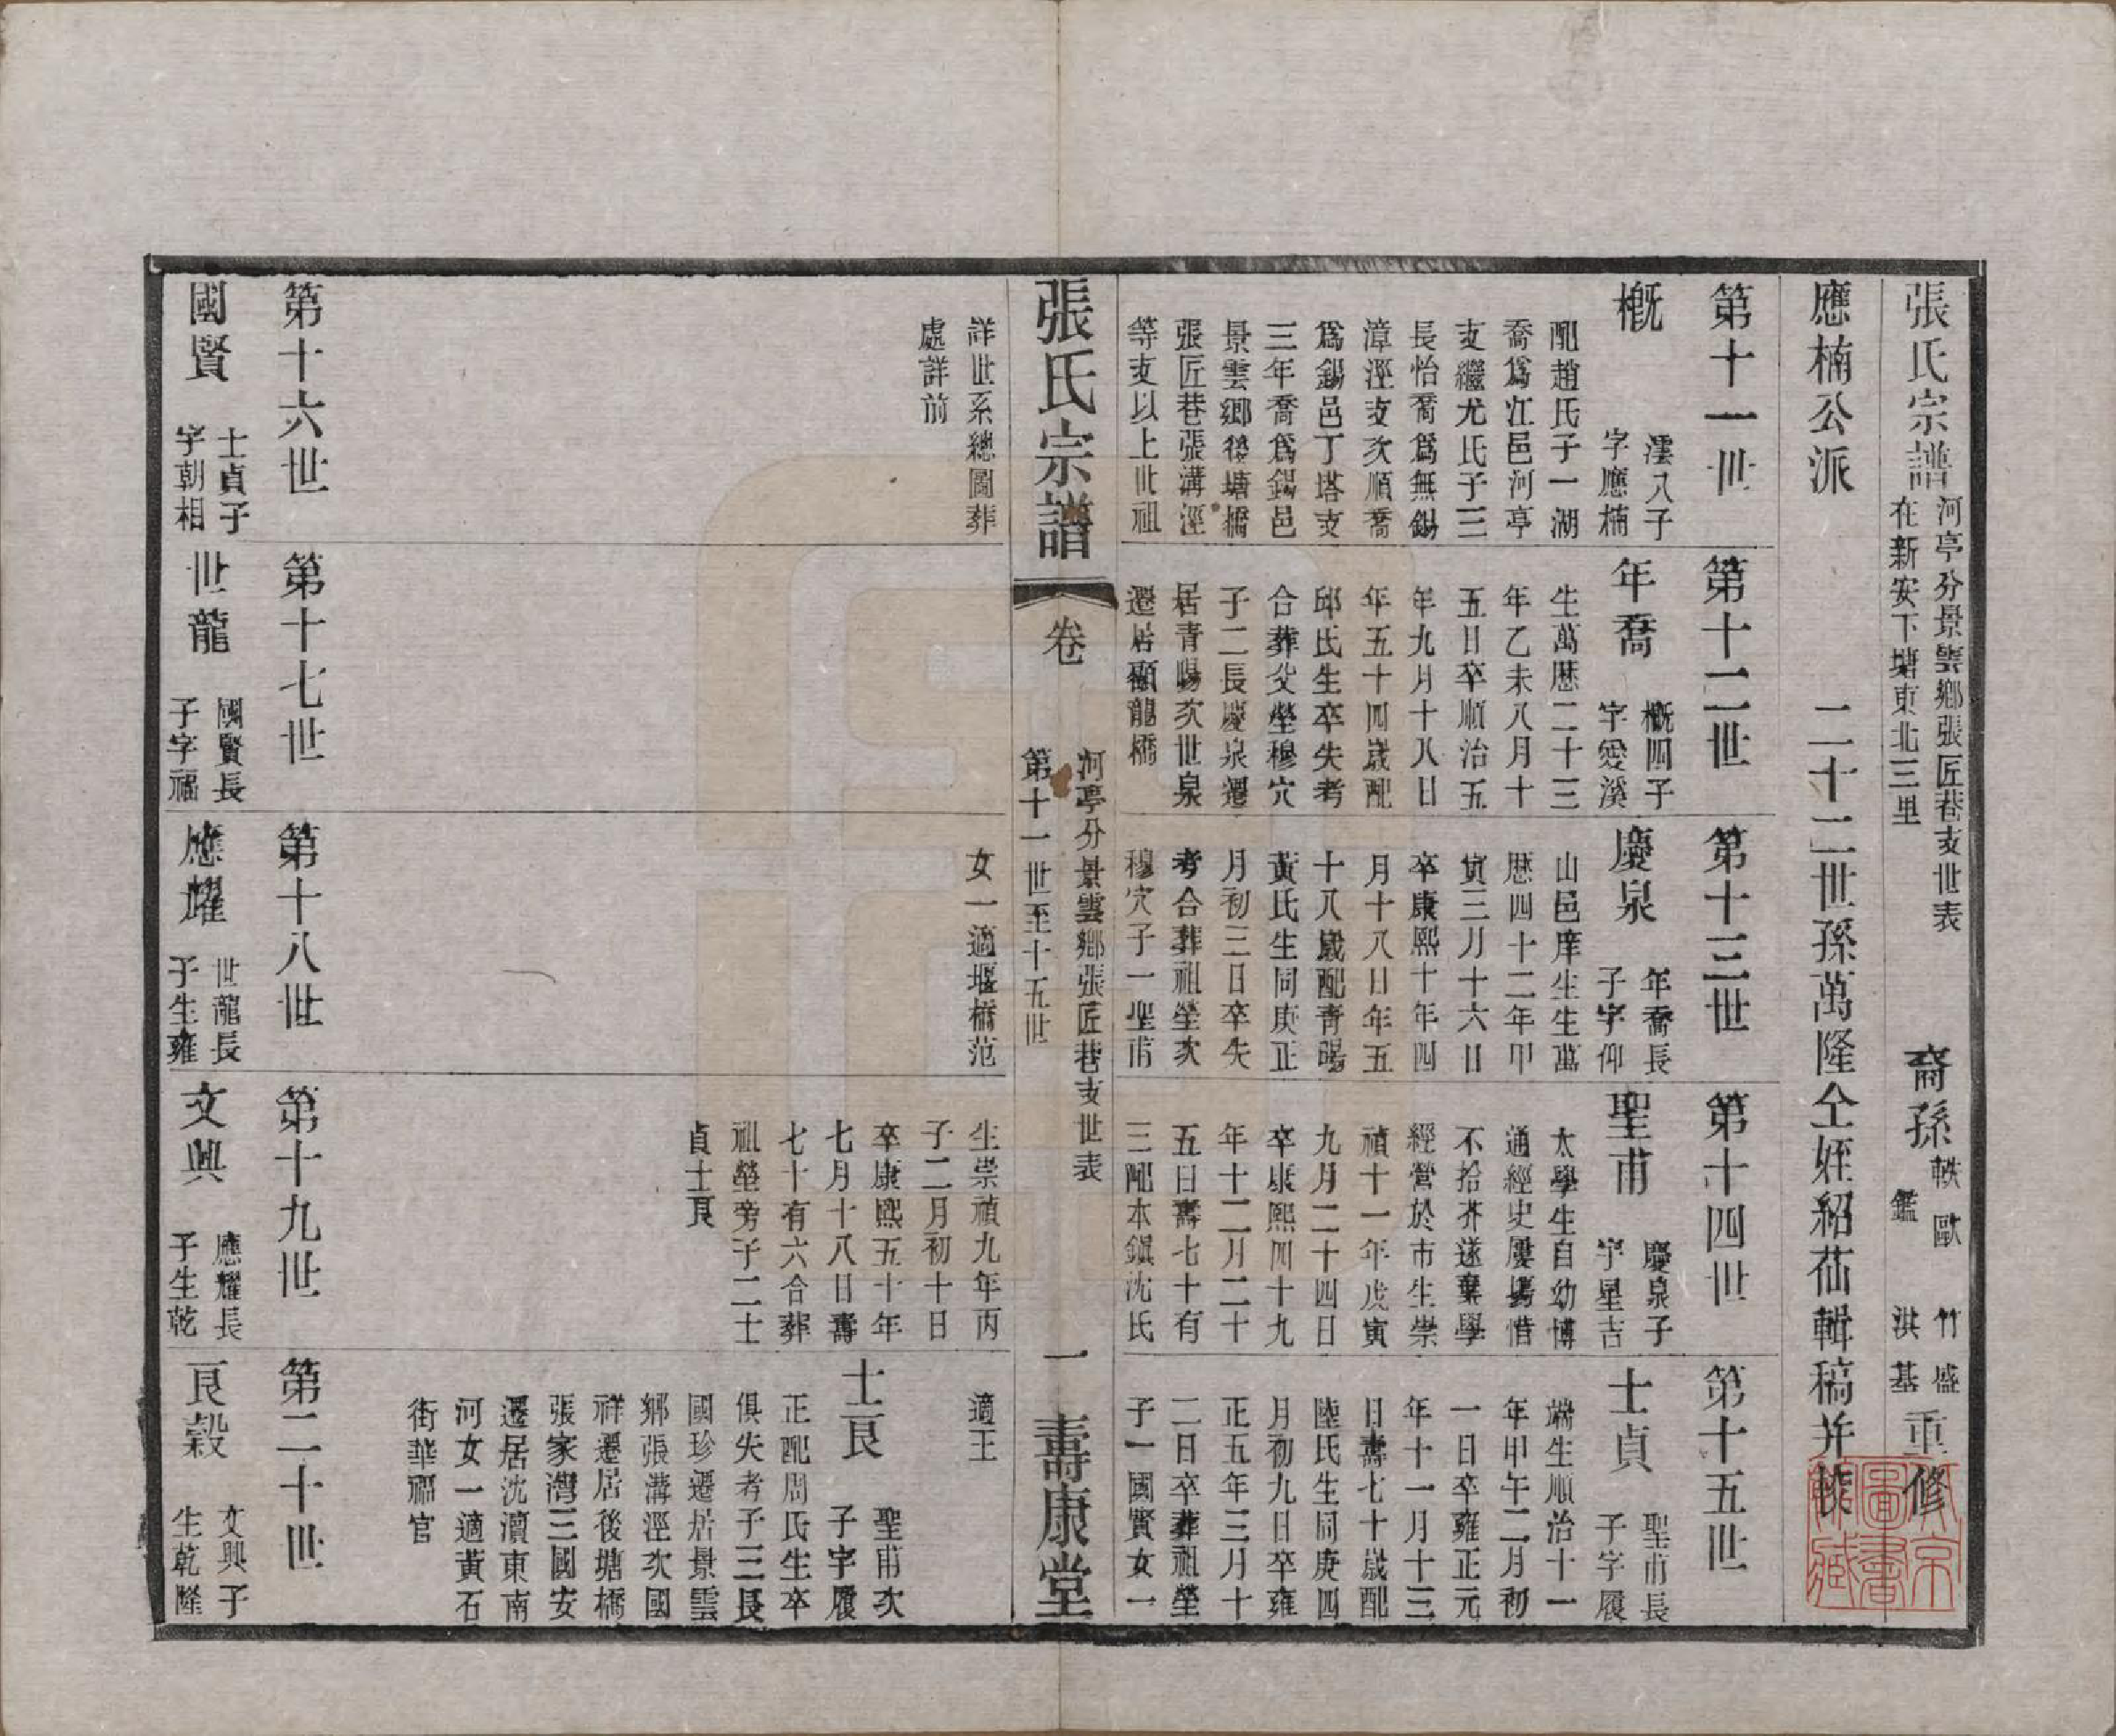 張氏宗譜
河亭分景雲鄉張匠巷支世表
在新安下塘東北三里
裔孫
軼歐
鑑
竹盛
洪基
重修
應楠公派
二十二世孫萬隆仝姪紹茄輯稿并校
第十一世
概
澐八子
字應楠
配趙氏子一湖
喬為江邑河亭
支繼尤氏子三
長怡喬為無錫
漳涇支次順喬
為錫邑丁塔支
三年喬為錫邑
景雲鄉後塘橋
張匠巷張溝涇
等支以上世祖
詳世系總圖葬
處詳前
第十二世
年喬
概四子
字愛溪
生萬歷二十三
年乙未八月十
五日卒順治五
年九月十八日
年五十四歲配
邱氏生卒失考
合葬父塋穆穴
子二長慶泉遷
居青暘次世泉
遷居顧龍橋
第十三世
慶泉
年喬長
子字仰
山邑庠生生萬
歷四十二年甲
寅三月十六日
卒康熙十年四
月十八日年五
十八歲配青暘
黃氏生同庚正
月初三日卒失
考合葬祖塋次
穆穴子一聖甫
女一適堰橋范
第十四世
聖甫
慶泉子
字星吉
太學生自幼博
通經史屢塲惜
不拾芥遂棄學
經營於市生崇
禎十一年戊寅
九月二十四日
卒康熙四十九
年十二月二十
五日壽七十有
三配本鎮沈氏
生崇禎九年丙
子二月初十日
卒康熙五十年
七月十八日壽
七十有六合葬
祖塋旁子二士
貞士良
第十五世
士貞
聖甫長
子字履
端生順治十一
年甲午二月初
一日卒雍正元
年十一月十三
日壽七十歲配
陸氏生同庚四
月初九日卒雍
正五年三月十
二日卒葬祖塋
子一國賢女一
適王
士良
聖甫次
子字履
正配周氏生卒
俱失考子三長
國珍遷居景雲
鄉張溝涇次國
祥遷居後塘橋
張家灣三國安
遷居沈瀆東南
河女一適黃石
街華禤官
張氏宗譜
卷
河亭分景雲鄉張匠巷支世表
第十一世至十五世
一
壽康堂
第十六世
國賢
士貞子
字朝相
第十七世
世龍
國賢長
子字福
第十八世
應耀
世龍長
子生雍
第十九世
文興
應耀長
子生乾
第二十世
良穀
文興子
生乾隆